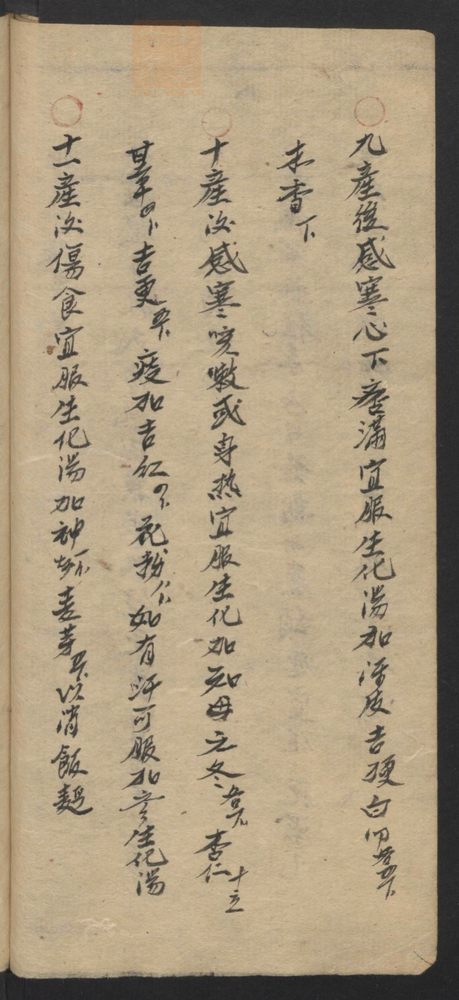 九產後感寒心下痞滿宜服生化湯加陳皮吉梗白叩各五卜
木香下
十產後感寒咳嗽或身熱宜服生化加知母天冬各下杏仁十立
甘草四卜吉更五下痰加吉紅四下花粉八卜如有汗可服加參生化湯
十一產後傷食宜服生化湯加神曲下麦芽五下以消飯麵